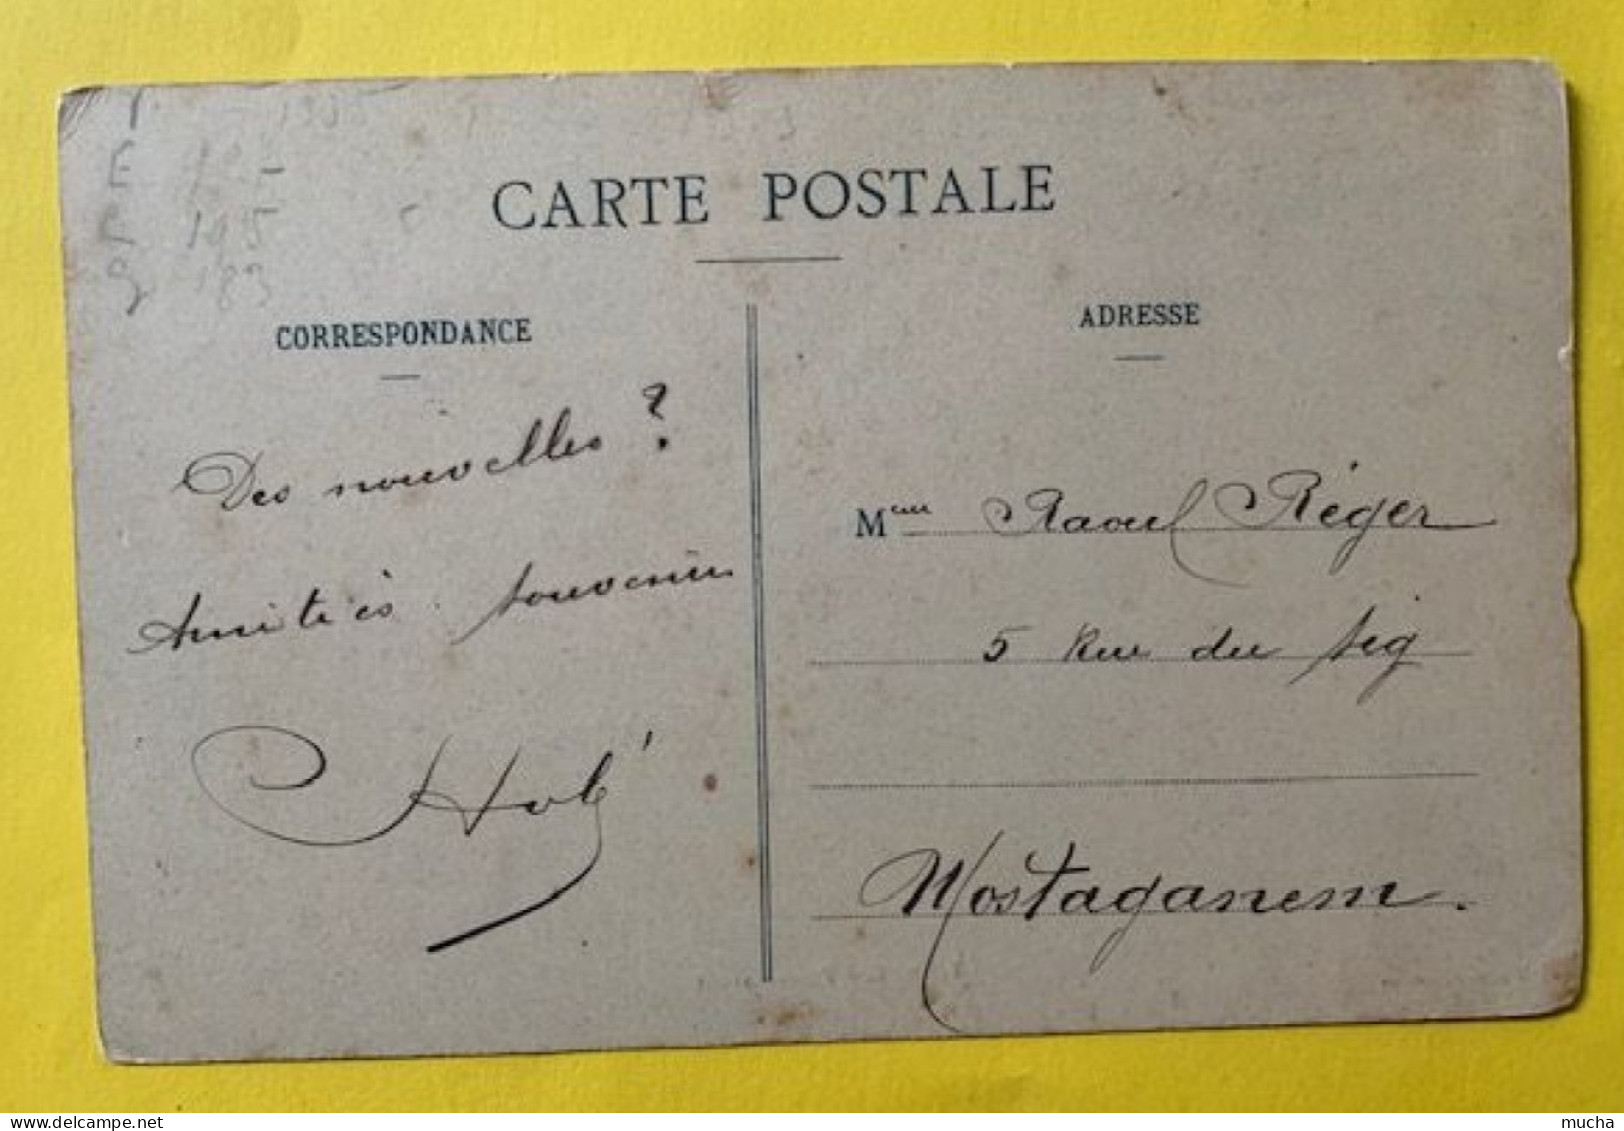 CARTE POSTALE
195
183
CORRESPONDANCE
Des nouvelles ?
Amitiés souvenirs
ADRESSE
Mme Raoul Réger
5 Rue du Sig
Mostaganem.
delcampe.net
mucha